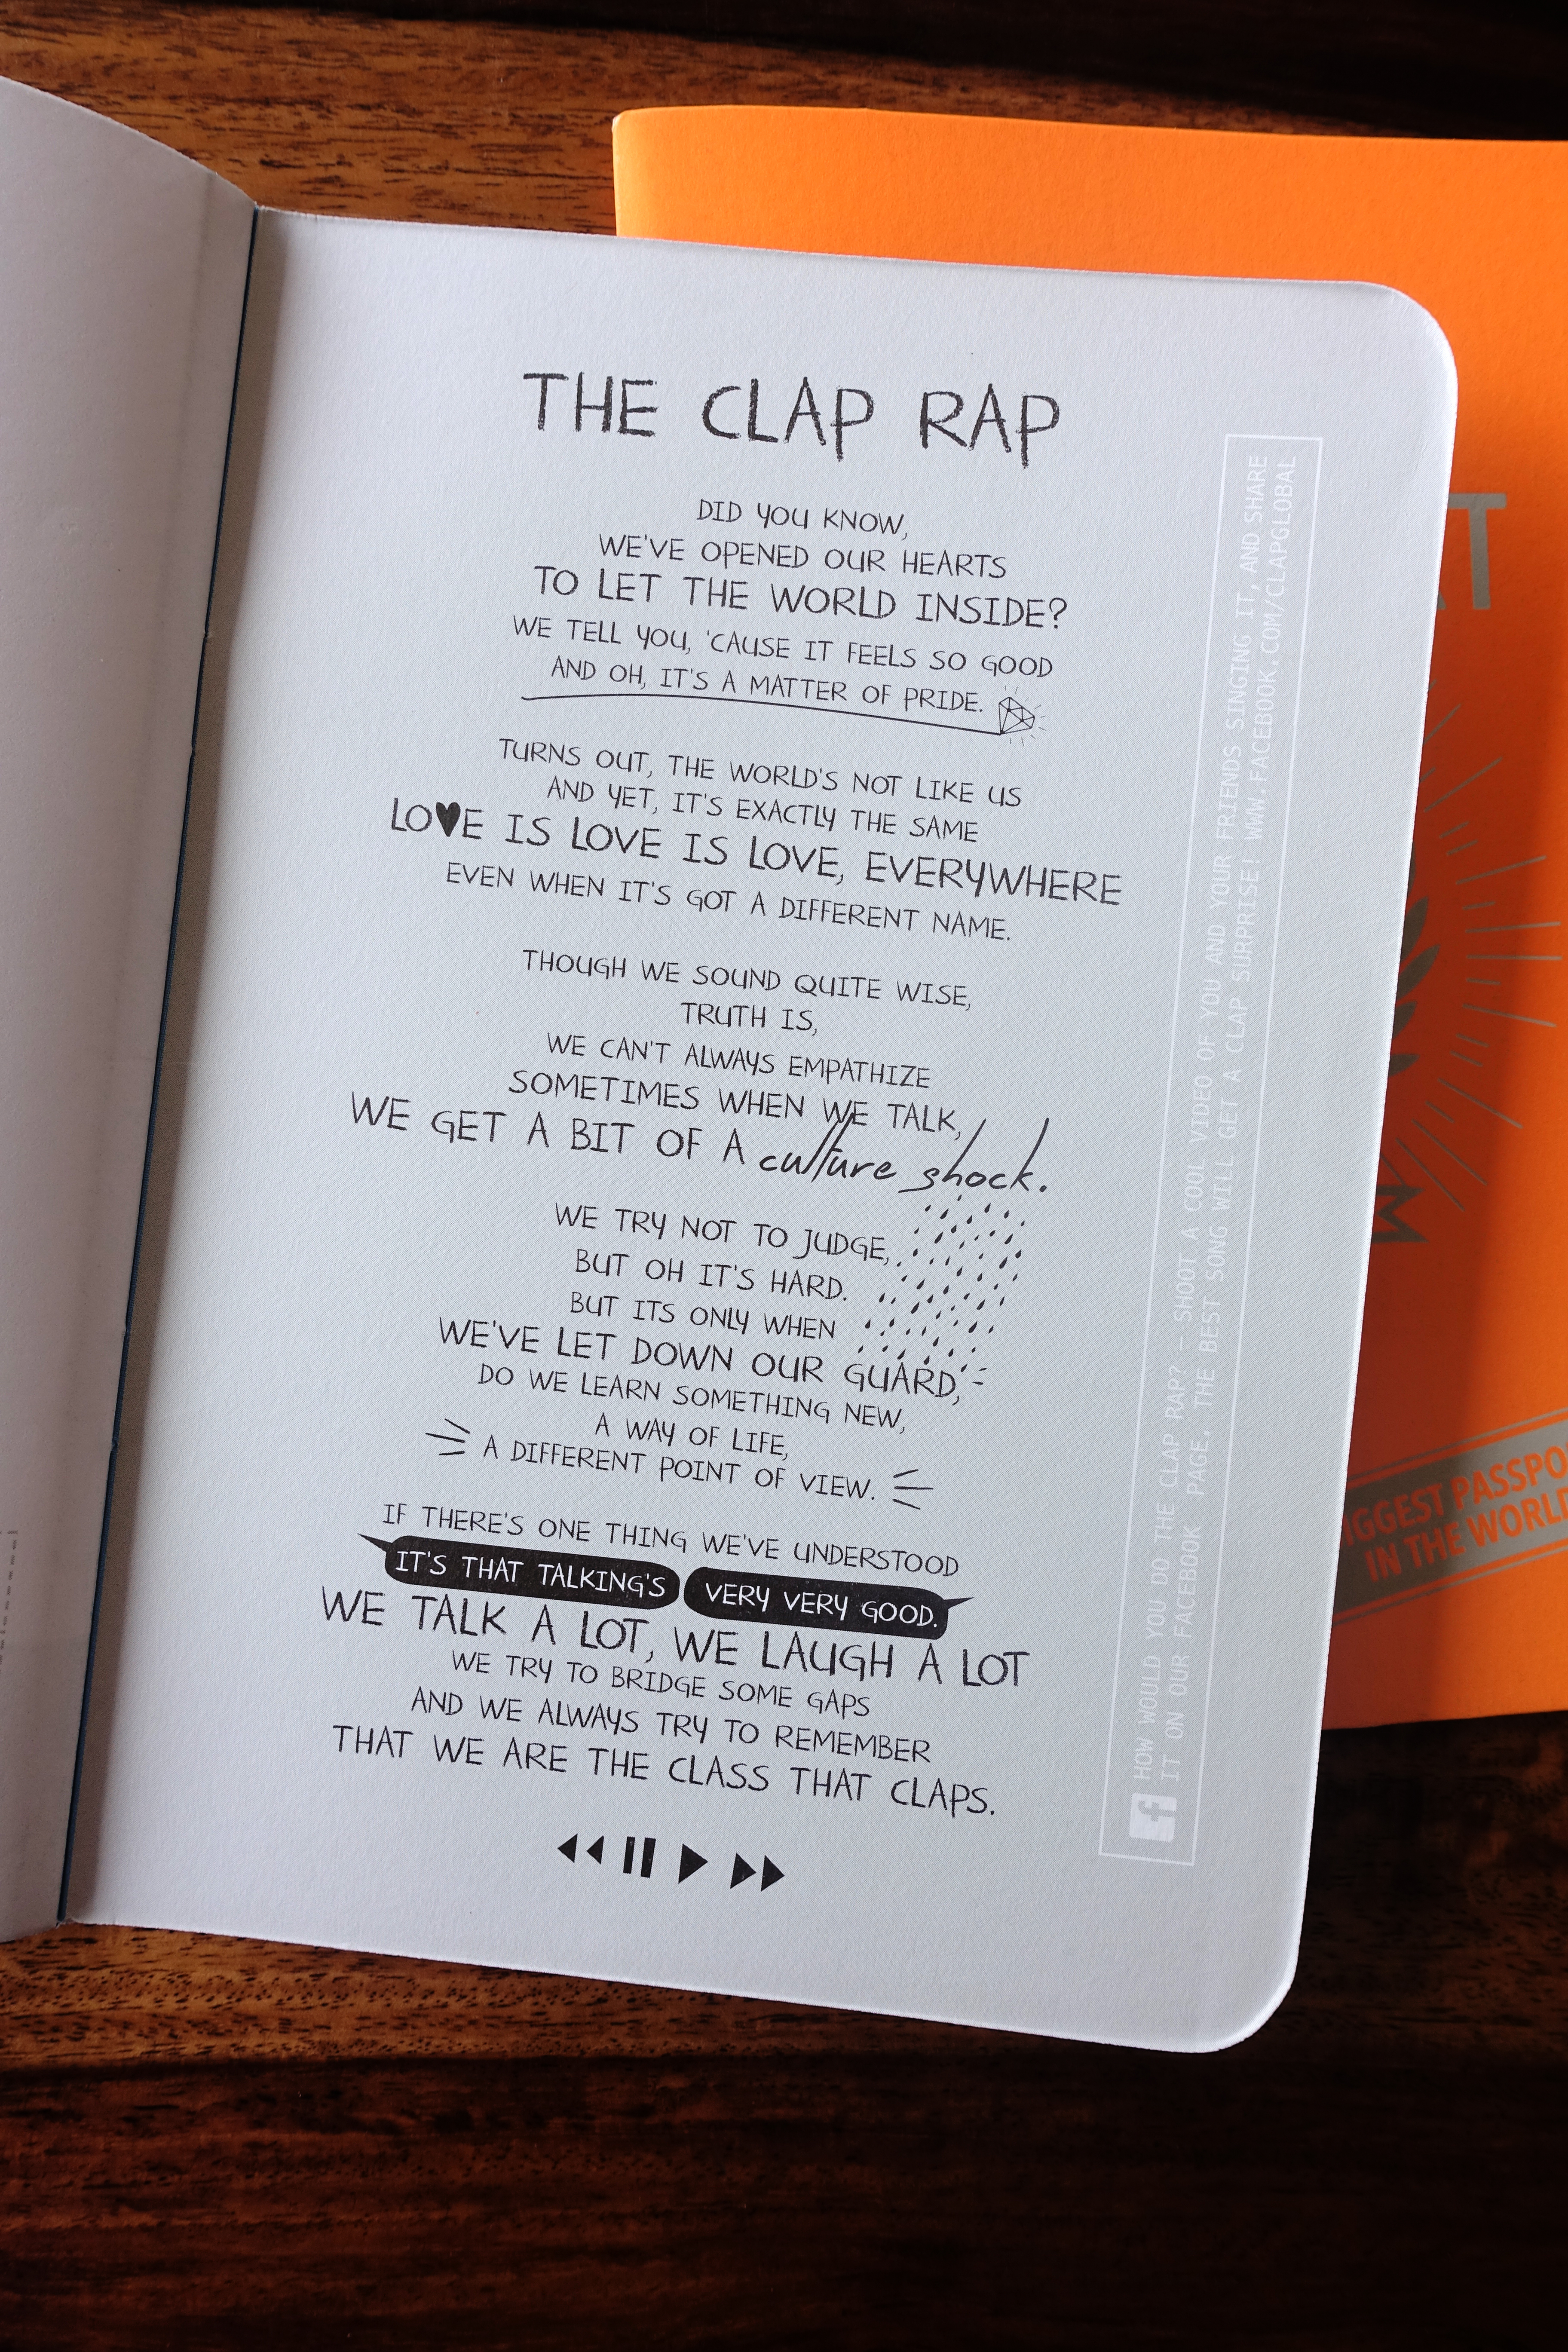 THE CLAP RAP
DID YOU KNOW,
WE'VE OPENED OUR HEARTS
TO LET THE WORLD INSIDE?
WE TELL YOU, 'CAUSE IT FEELS SO GOOD
AND OH, IT'S A MATTER OF PRIDE.
TURNS OUT, THE WORLD'S NOT LIKE US
AND YET, IT'S EXACTLY THE SAME
LO♥E IS LOVE IS LOVE, EVERYWHERE
EVEN WHEN IT'S GOT A DIFFERENT NAME.
THOUGH WE SOUND QUITE WISE,
TRUTH IS,
WE CAN'T ALWAYS EMPATHIZE
SOMETIMES WHEN WE TALK,
WE GET A BIT OF A culture shock.
WE TRY NOT TO JUDGE,
BUT OH IT'S HARD.
BUT ITS ONLY WHEN
WE'VE LET DOWN OUR GUARD,
DO WE LEARN SOMETHING NEW,
A WAY OF LIFE,
A DIFFERENT POINT OF VIEW.
IF THERE'S ONE THING WE'VE UNDERSTOOD
IT'S THAT TALKING'S VERY VERY GOOD.
WE TALK A LOT, WE LAUGH A LOT
WE TRY TO BRIDGE SOME GAPS
AND WE ALWAYS TRY TO REMEMBER
THAT WE ARE THE CLASS THAT CLAPS.
f HOW WOULD YOU DO THE CLAP RAP? - SHOOT A COOL VIDEO OF YOU AND YOUR FRIENDS SINGING IT, AND SHARE
IT ON OUR FACEBOOK PAGE. THE BEST SONG WILL GET A CLAP SURPRISE! WWW.FACEBOOK.COM/CLAPGLOBAL
T
M
IGGEST PASSPO
IN THE WORLD